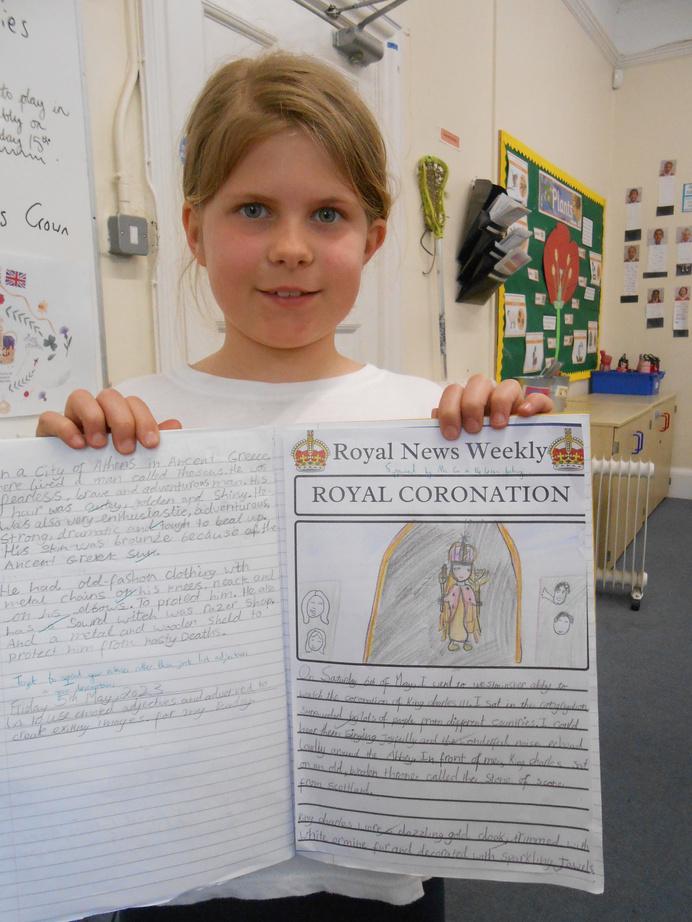 ies
to play in
bly on
day 15th
s Crown
Plants
In a City of Athens in Ancient Greece
there lived a man called Theseus. He was
fearless, brave and adventurous man. His
hair was curley, golden and Shiny. He
was also very enthuciastic, adventurous,
strong, dramatic and tough to beat up.
His skin was brounze because of the
Ancient Greek Sun.
He had old-fashon clothing with
metal chains on his knees, neack and
on his elbows. To protect him. He also
has a Sound witch was razer sharp.
And a metal and wooden sheld to
protect him from nasty Deaths.
Friday 5th May 2023
create exiting images for my reader.
Royal News Weekly
ROYAL CORONATION
On Saturday 6th of May, I went to westminster abby to
watch the coronation of King charles III. I sat in the congregation
surounded by lots of people from different countries. I could
hear them singing joyfully and the wonderful music echoed
loudly around the Abbey. In front of me, King charles sat
on an old, wooden throne called the Stone of scone
from scottland.
King charles wore a dazzling gold cloak, trimmed with
white ermine fur and decorated with sparkling jewels